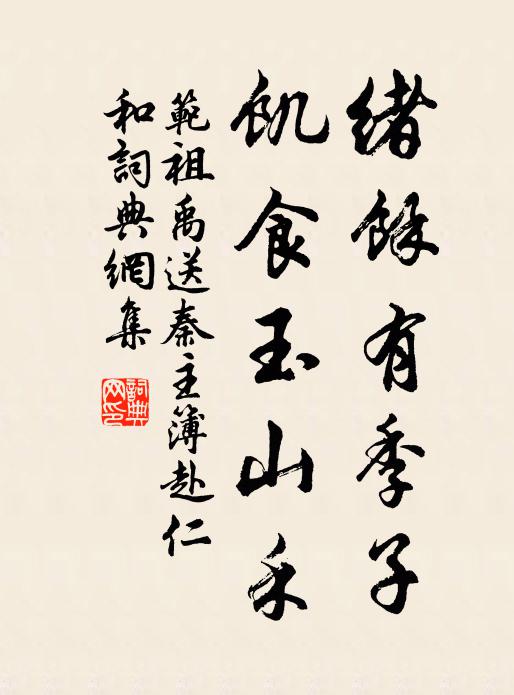 緒餘有季子
飢食玉山禾
範祖禹送秦主簿赴仁
和詞典網集
詞典网印